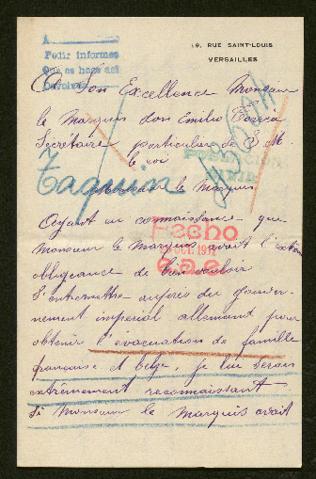 19, RUE SAINT-LOUIS
VERSAILLES
A
Pedir informes
Que se hace así
A Son Excellence Monsieur
le Marquis don Emilio
Secrétaire particulier de S. M.
le roi
Taquin
Monsieur le Marquis
Ayant eu connaissance que
Monsieur le Marquis avait l'extrême
obligeance de bien vouloir
s'entremettre auprès du gouver-
nement impérial allemand pour
obtenir l'évacuation de famille
française et belge, je lui serais
extrêmement reconnaissant
si Monsieur le Marquis avait
Hecho
OCT. 1917